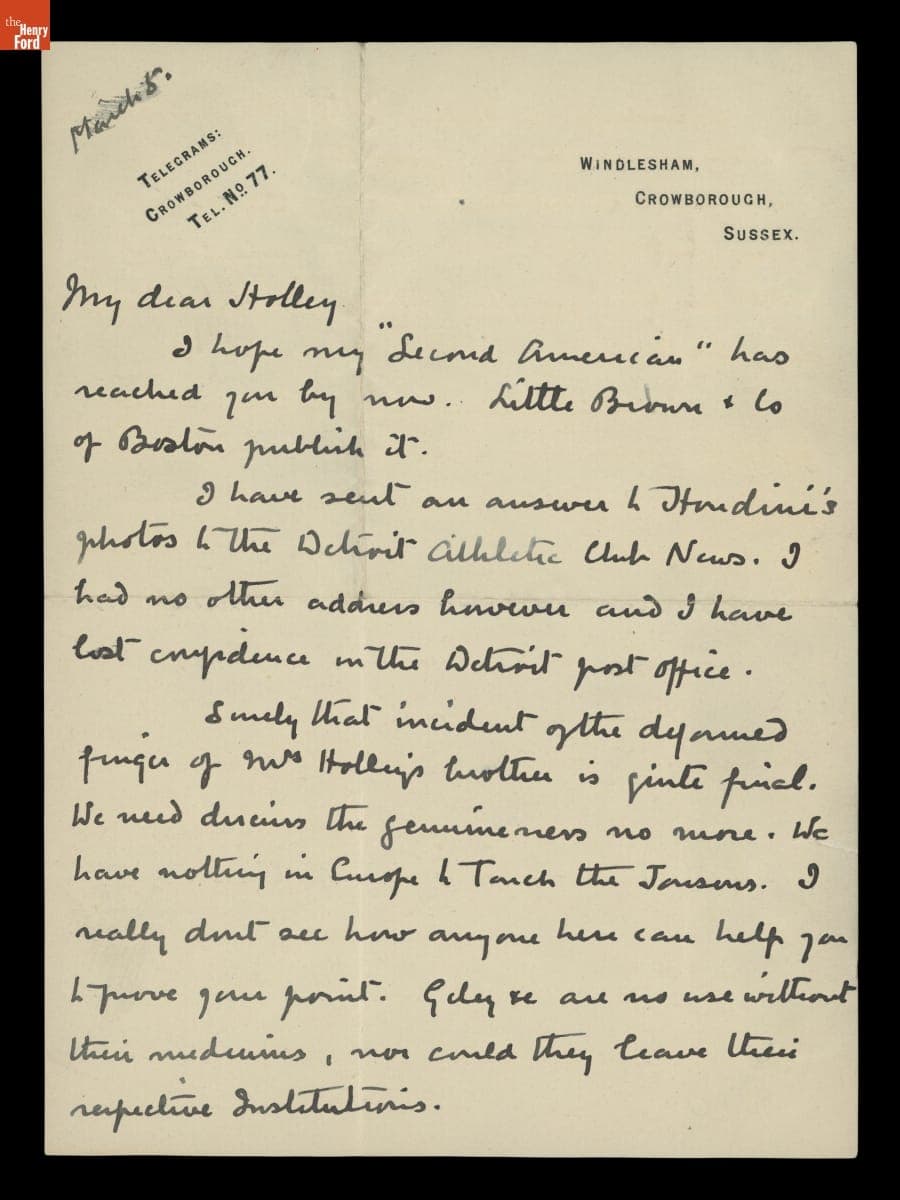 the
Henry
Ford
March 5.
TELEGRAMS:
CROWBOROUGH.
TEL. No. 77.
WINDLESHAM,
CROWBOROUGH,
SUSSEX.
My dear Holley
I hope my "Second American" has
reached you by now. Little Brown & Co
of Boston publish it.
I have sent an answer to Houdini's
photos to the Detroit Athletic Club News. I
had no other address however and I have
lost confidence in the Detroit post office.
Surely that incident of the deformed
finger of Mrs Holley's brother is quite final.
We need discuss the genuineness no more. We
have nothing in Europe to touch the Jonsons. I
really dont see how anyone here can help you
to prove your point. Geley &c are no use without
their mediums, nor could they leave their
respective Institutions.